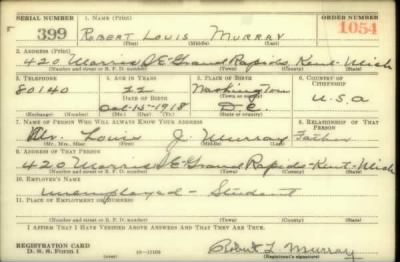 SERIAL NUMBER
1. NAME (Print)
ORDER NUMBER
399
ROBERT LOUIS MURRAY
1054
(First) (Middle) (Last)
2. ADDRESS (Print)
420 Morris S E - Grand Rapids, Kent - Mich
(Number and street or R. F. D. number) (Town) (County) (State)
3. TELEPHONE
4. AGE IN YEARS
5. PLACE OF BIRTH
6. COUNTRY OF CITIZENSHIP
80140
22
Washington
(Town or county)
DATE OF BIRTH
Oct-15-1918
D.C.
U.S.A
(Mo.) (Day) (Yr.)
(State or country)
7. NAME OF PERSON WHO WILL ALWAYS KNOW YOUR ADDRESS
8. RELATIONSHIP OF THAT PERSON
Mr. Louis J. Murray
Father
(Mr., Mrs., Miss) (First) (Middle) (Last)
9. ADDRESS OF THAT PERSON
420 Morris S E - Grand Rapids - Kent - Mich
(Number and street or R. F. D. number) (Town) (County) (State)
10. EMPLOYER'S NAME
unemployed - Student
11. PLACE OF EMPLOYMENT OR BUSINESS
(Number and street or R. F. D. number) (Town) (County) (State)
I AFFIRM THAT I HAVE VERIFIED ABOVE ANSWERS AND THAT THEY ARE TRUE.
REGISTRATION CARD
D. S. S. Form 1
Robert L. Murray
(Registrant's signature)